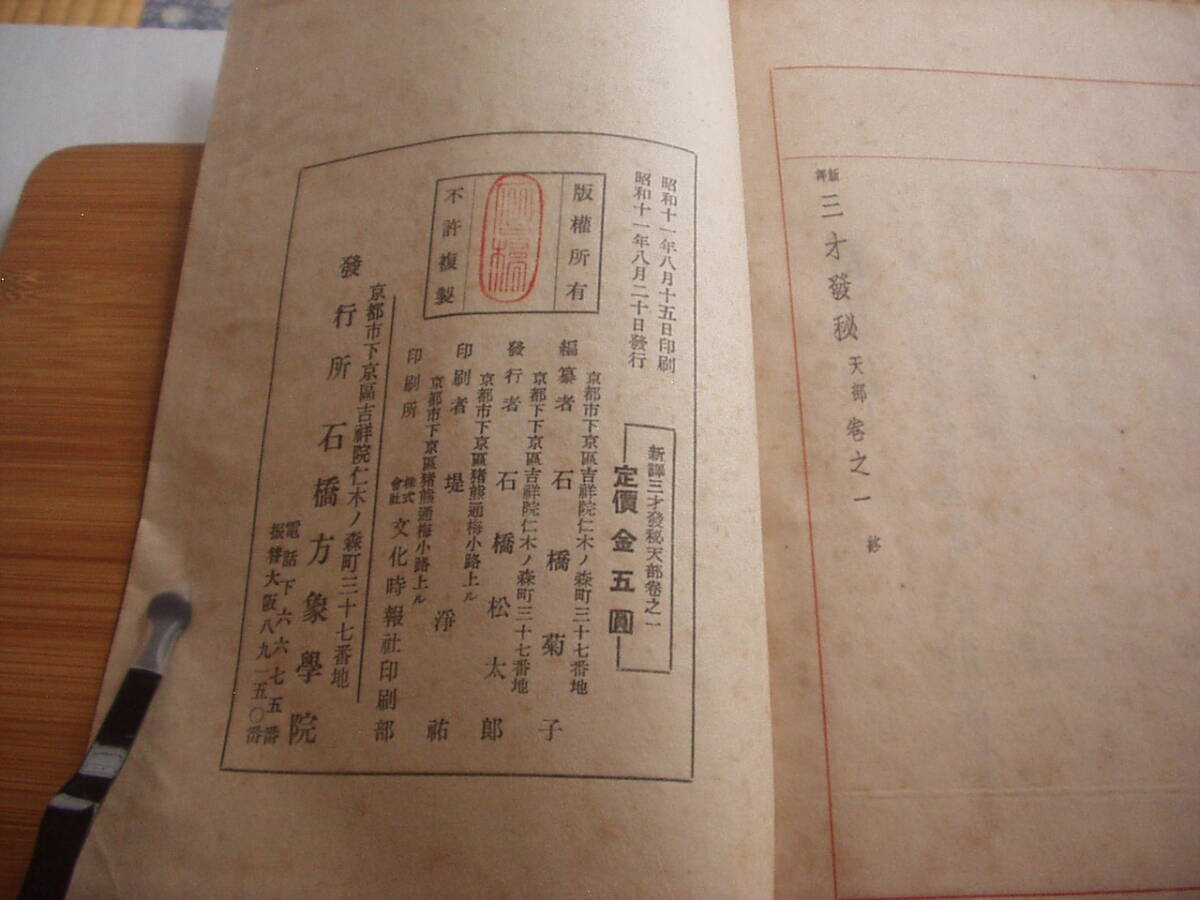 新譯 三才發秘 天部 卷之一 終
昭和十一年八月十五日印刷
昭和十一年八月二十日發行
版權所有
不許複製
新譯三才發秘天部卷之一
定價金五圓
京都市下京區吉祥院仁木ノ森町三十七番地
編纂者 石橋菊子
京都下下京區吉祥院仁木ノ森町三十七番地
發行者 石橋松太郎
京都市下京區猪熊通梅小路上ル
印刷者 堤淨祐
京都市下京區猪熊通梅小路上ル
印刷所 株式會社 文化時報社印刷部
京都市下京區吉祥院仁木ノ森町三十七番地
發行所 石橋方象學院
電話下六六七五番
振替大阪八九一五〇番